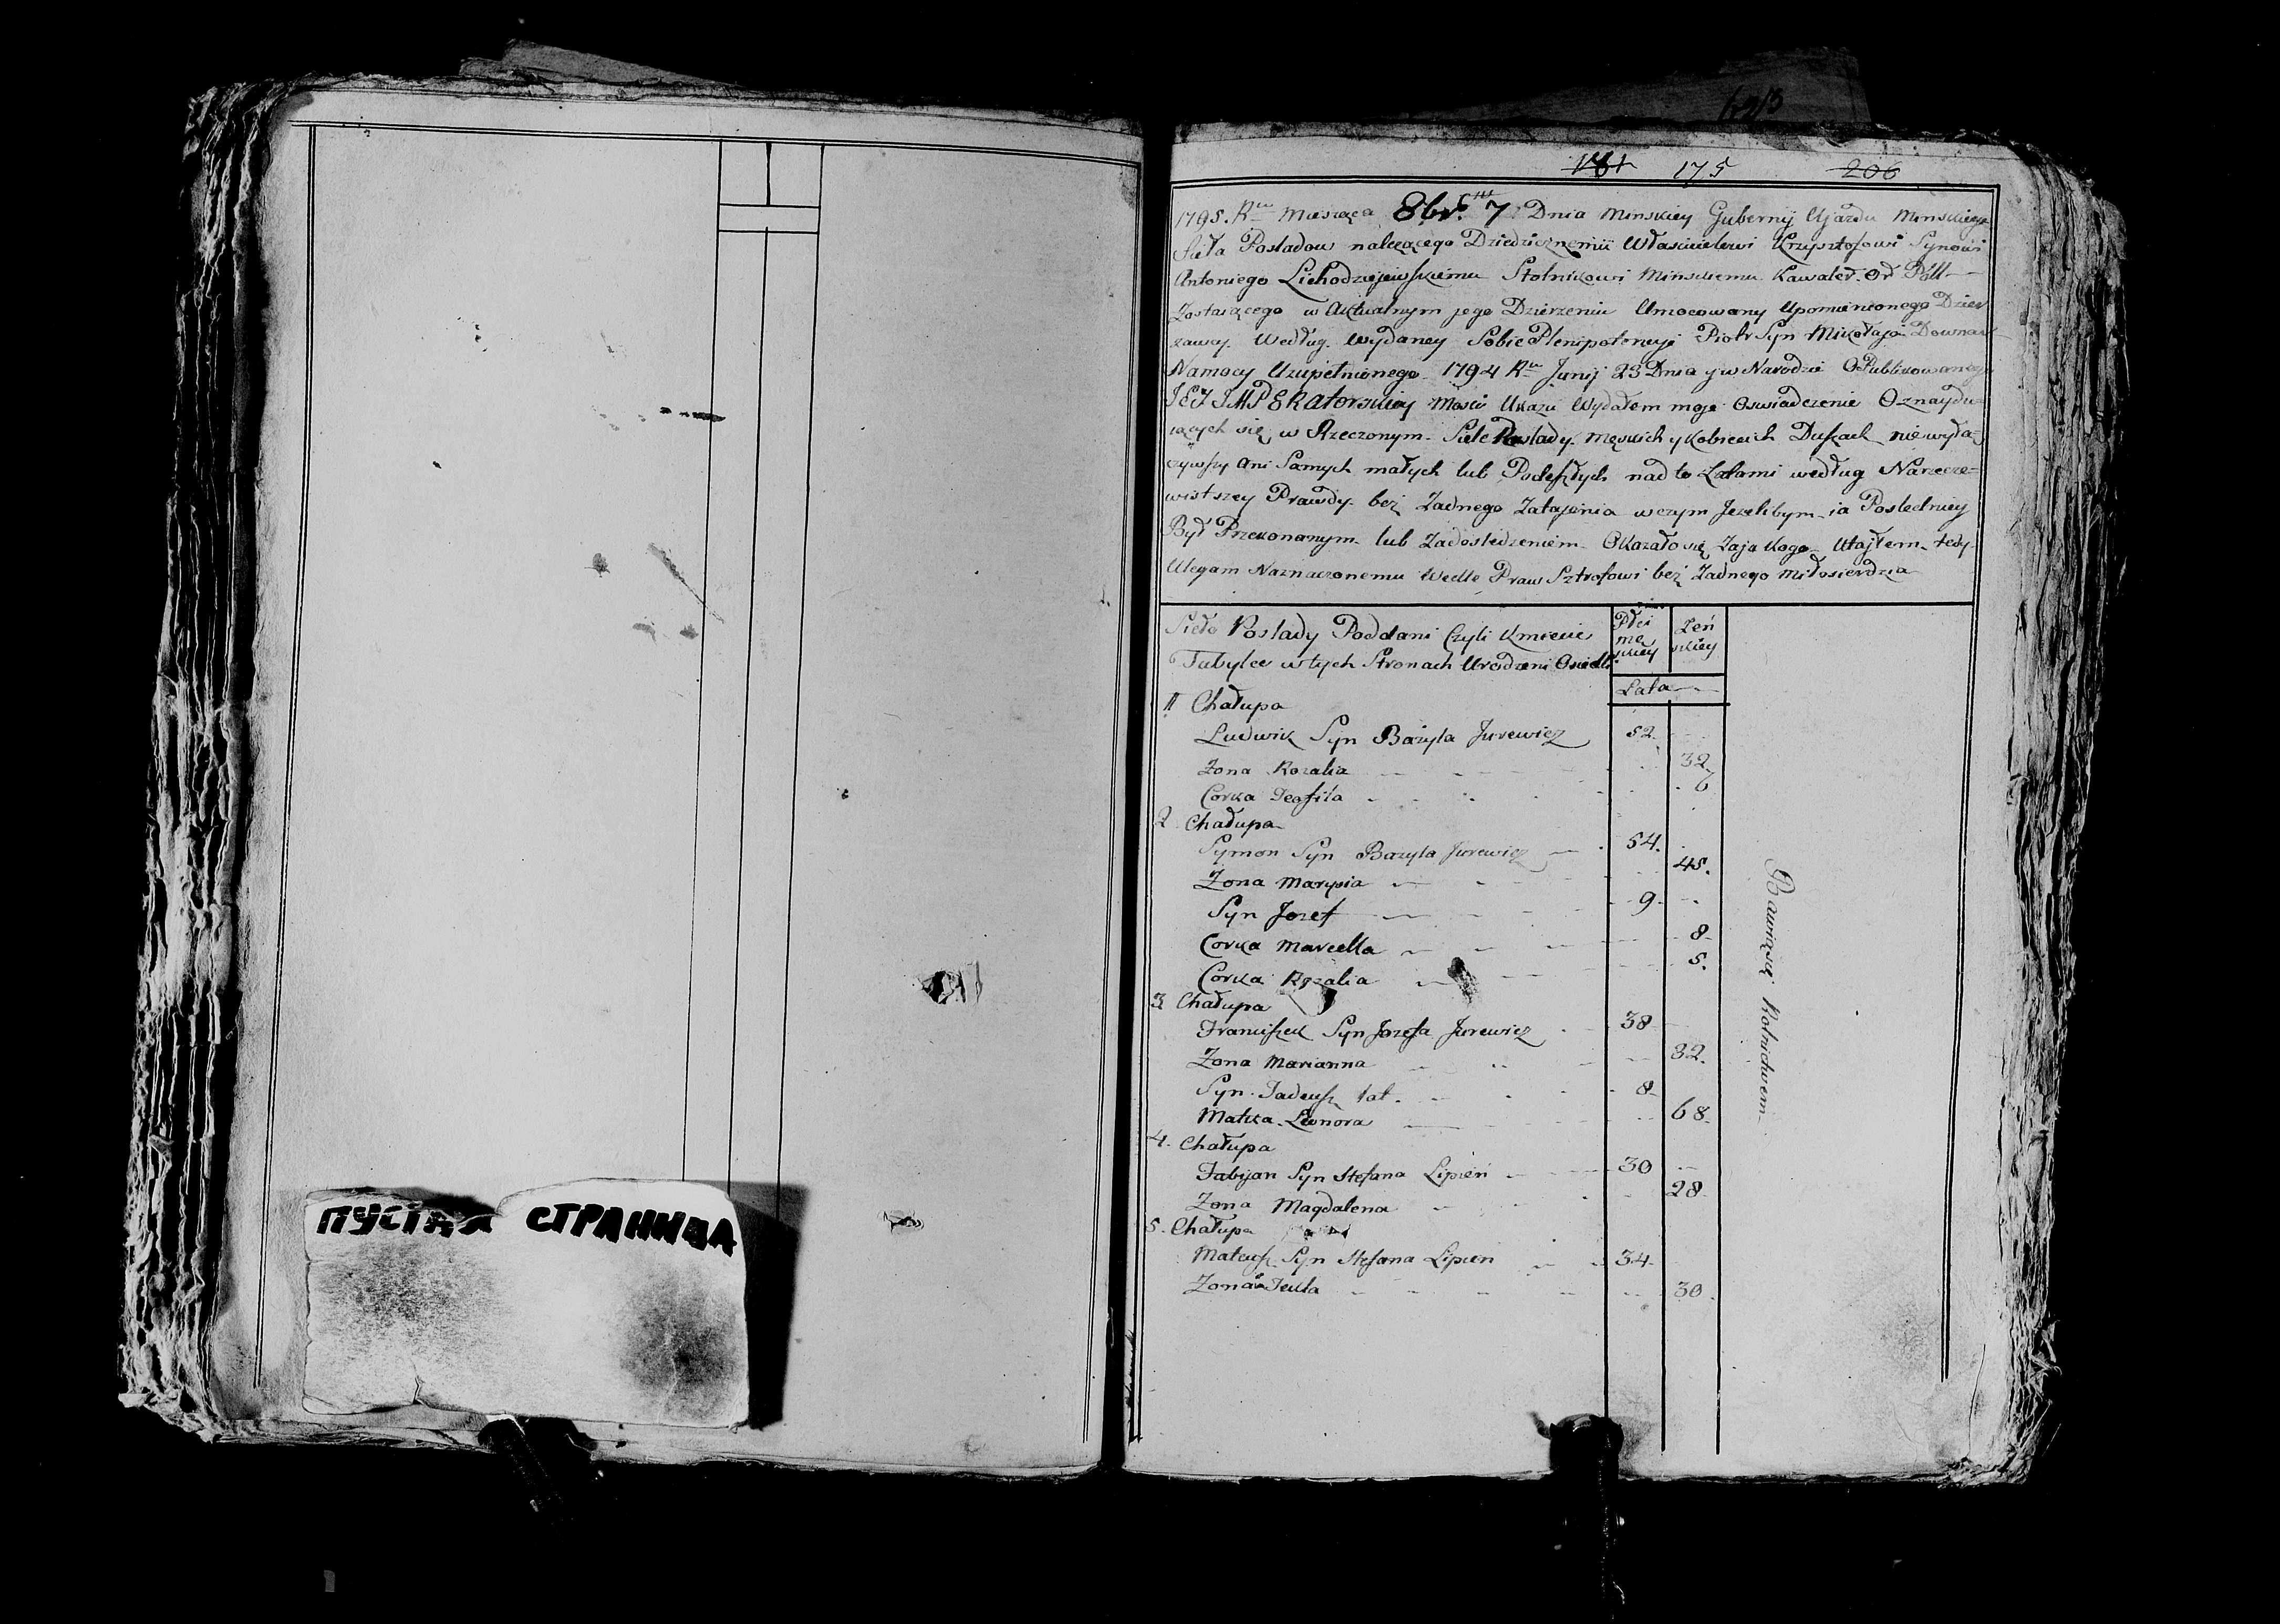 ПУСТАЯ СТРАНИЦА
175 206
1795. Rku Miesząca 8br. 7 Dnia Minskiey Gubernij Ujazdu Minskiego
Sieła Posladow należącego Dziedzicznemu Własicielowi Krzysztofowi Synowi
Antoniego Lichodziejewskiemu Stolnikowi Minskiemu Kawaler. Or Poll
Zostaiącego w Aktualnym jego Dzierżeniu Umocowany Upomnionego Dzier
zawcy. Według wydaney Sobie Plenipotencyi Piotr Syn Mikołaja Downar
Namocy Uzupełnionego 1794 Rku Junij 23 Dnia y w Narodzie OPublikowanego
JEJ IMPERatorskiey Mosci Ukazu Wydałem moje Oswiadczenie Oznaydu-
iących się w Rzeczonym Siele Poslady męskich y kobiecich Duszach nie wyłą-
czywszy ani Samych małych lub Podeszłych nad to Latami według Narzecze-
wistszey Prawdy bez Zadnego Zatajenia w czym Jezelibym ia Posledniey
Był Przekonanym lub Zadosledzeniem Okazało się Zaja kogo Utajłem tedy
Ulegam Naznaczonemu Wedle Praw Sztrofowi bez Zadnego Miłosierdzia
Sieło Poslady Poddani Czyli Kmiecie
Tubylce w tych Stronach Urodzeni Osiedli
Płci
mę
skiey
Żeń
skiey
Lata
1 Chałupa
Ludwik Syn Bazyla Jurewicz 52
Żona Rozalia 32
Corka Teofila 6
2 Chałupa
Symon Syn Bazyla Jurewicz 54.
Żona Marysia 45.
Syn Jozef 9
Corka Marcella 8
Corka Rozalia 5.
3 Chałupa
Franciszek Syn Jozefa Jurewicz 38
Żona Marianna 32.
Syn Tadeusz lat. 8
Matka Leonora 68
4. Chałupa
Fabijan Syn Stefana Lipień 30
Żona Magdalena 28
5. Chałupa
Mateusz Syn Stefana Lipień 34
Żona Tekla 30
Bawiąsię Rolnictwem